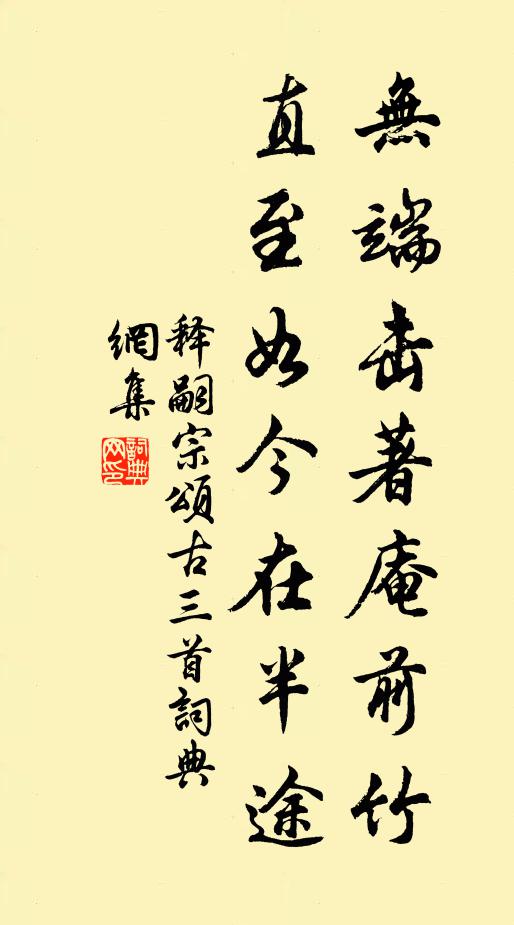 無端击著庵前竹
直至如今在半途
释嗣宗頌古三首詞典
網集
詞典
网印